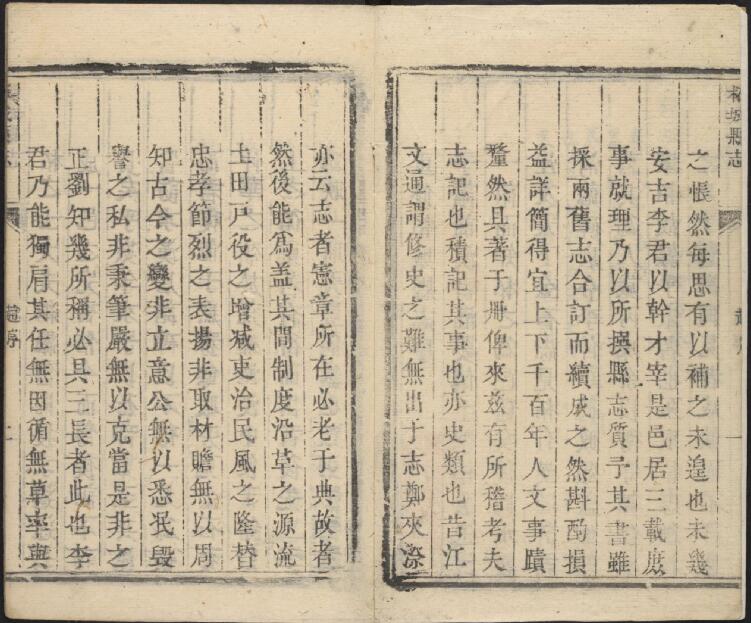 柘城縣志
趙序
一
之悵然每思有以補之未遑也未幾
安吉李君以幹才宰是邑居三載庶
事就理乃以所撰縣志質予其書雖
採兩舊志合訂而續成之然斟酌損
益詳簡得宜上下千百年人文事蹟
釐然具著于冊俾來兹有所稽考夫
志記也積記其事也亦史類也昔江
文通謂修史之難無出于志鄭夾漈
亦云志者憲章所在必老于典故者
然後能爲盖其間制度沿革之源流
土田戸役之增减吏治民風之隆替
忠孝節烈之表揚非取材贍無以周
知古今之變非立意公無以悉泯毀
譽之私非秉筆嚴無以克當是非之
正劉知幾所稱必具三長者此也李
君乃能獨肩其任無因循無草率與
趙序